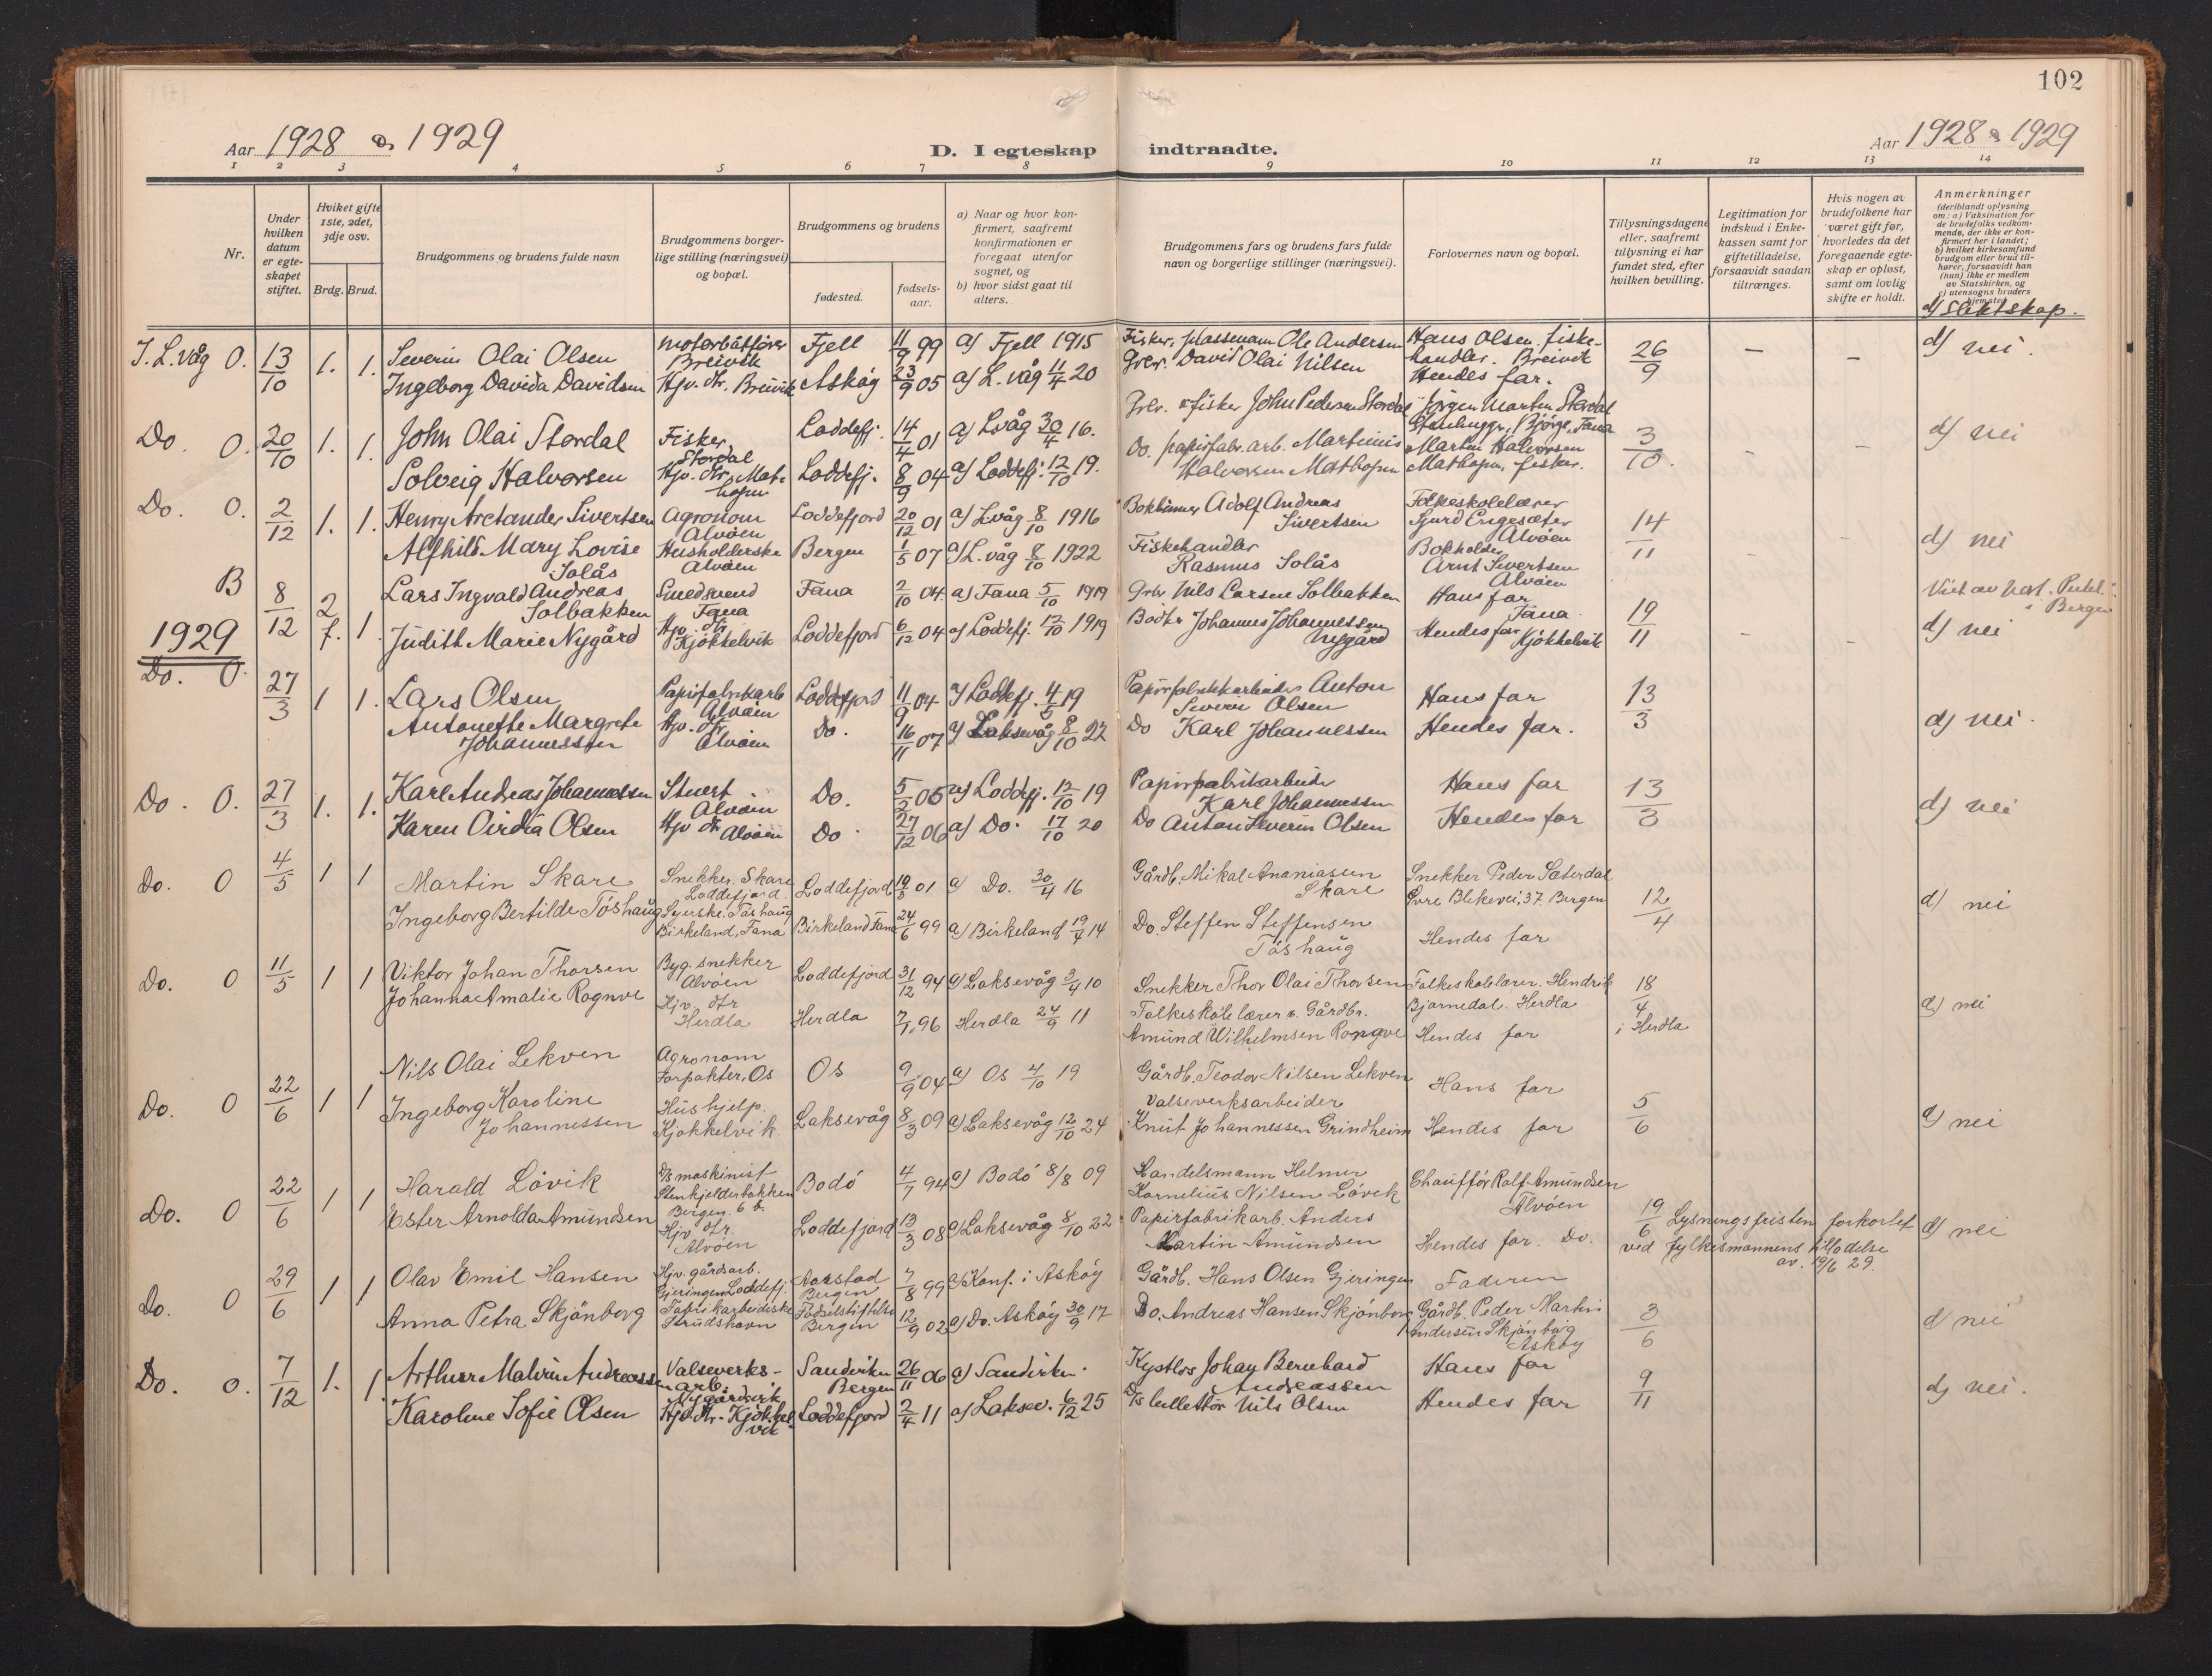 102
Aar 1928 & 1929
D. I egteskap indtraadte.
Aar 1928 & 1929
1 2 3 4 5 6 7 8 9 10 11 12 13 14
Nr.
Under hvilken datum er egteskapet stiftet.
Hvilket gifte 1ste, 2det, 3dje osv.
Brdg. Brud.
Brudgommens og brudens fulde navn
Brudgommens borgerlige stilling (næringsvei) og bopæl.
Brudgommens og brudens
fødested.
fødselsaar.
a) Naar og hvor konfirmert, saafremt konfirmationen er foregaat utenfor sognet, og
b) hvor sidst gaat til alters.
Brudgommens fars og brudens fars fulde navn og borgerlige stillinger (næringsvei).
Forlovernes navn og bopæl.
Tillysningsdagene eller, saafremt tillysning ei har fundet sted, efter hvilken bevilling.
Legitimation for indskud i Enkekassen samt for giftetilladelse, forsaavidt saadan tiltrænges.
Hvis nogen av brudefolkene har været gift før, hvorledes da det foregaaende egteskap er opløst, samt om lovlig skifte er holdt.
Anmerkninger
(deriblandt oplysning om: a) Vaksination for de brudefolks vedkommende, der ikke er konfirmert her i landet;
b) hvilket kirkesamfund brudgom eller brud tilhører, forsaavidt han (hun) ikke er medlem av Statskirken, og
c) utensogns bruders hjemsted
d) Slektskap.
L. våg O. 13/10 1. 1. Severin Olai Olsen Motorbåtfører Breivik Fjell 11/9 99 a) Fjell 1915 Fisker, Ole Andersen Hans Olsen, fiskehandler. Breivik 26/9 — — d) nei.
Ingeborg Davida Davidsen Hjv. dtr. Breivik Askøy 23/9 05 a) L. våg 11/4 20 Grbr. David Olai Nilsen Hendes far.
Do. O. 20/10 1. 1. John Olai Stordal Fisker, Stordal Loddefj. 14/4 01 a) Lvåg 30/4 16. Grbr. & fisker John Pedersen Stordal Jørgen Martin Stordal Stenhuggr, Bjørge, Fana 3/10. - - d) nei
Solveig Halvorsen Hjv. dtr, Mathopen Loddefj. 8/9 04 a) Loddefj. 12/10 19. Do. papirfabr. arb. Martinius Halvorsen Mathopen Martin Halvorsen Mathopen, fisker.
Do. O. 2/12 1. 1. Henry Arctander Sivertsen Agronom Alvøen Loddefjord 20/12 01 a) Lvåg 8/10 1916 Bokbinner Adolf Andreas Sivertsen Folkeskolelærer Sjurd Engesæter Alvøen 14/11 - - d) nei
Alfhild Mary Lovise Solås Husholderske Alvøen Bergen 1/5 07 a) L. våg 8/10 1922 Fiskehandler Rasmus Solås Bokholder Arnt Sivertsen Alvøen
B 8/12 2 1. Lars Ingvald Andreas Solbakken Smedsvend Fana Fana 2/10 04 a) Fana 5/10 1919 Grbr Nils Larsen Solbakken Hans far Fana 19/11 - - Viet av i Bergen d) nei
Judith Marie Nygård Hjv. dtr Kjøkkelvik Loddefjord 6/12 04 a) Loddefj. 12/10 1919 Johannes Johannessen Nygård Hendes far Kjøkkelvik
1929
Do. O. 27/3 1 1. Lars Olsen Papirfabrikarb Alvøen Loddefjord 11/9 04 a) Loddefj. 19 Papirfabrikkarbeider Anton Severin Olsen Hans far 13/3 d) nei.
Antonette Margrete Johannessen Hjv. dtr Alvøen Do. 16/11 07 a) Laksevåg 8/10 22 Do Karl Johannessen Hendes far.
Do. O. 27/3 1. 1. Karl Andreas Johannessen Stuert Alvøen Do. 5/2 05 a) Loddefj. 12/10 19 Papirfabrikarbeider Karl Johannessen Hans far 13/3 d) nei
Karen Olsen Hjv dtr Alvøen Do 27/12 06 a) Do. 17/10 20 Do Anton Severin Olsen Hendes far
Do. O 4/5 1 1 Martin Skare Snekker, Skare Loddefjord. Loddefjord 19/3 01 a) Do. 30/4 16 Gårdb. Mikal Ananiasen Skare Snekker Peder Sæterdal Øvre Blekevei, 37. Bergen 12/4 d) nei
Ingeborg Bertilde Tøshaug Syerske. Tøshaug Birkeland, Fana Birkeland Fana 24/6 99 a) Birkeland 19/4 14 Do. Steffen Steffensen Tøshaug Hendes far
Do. O 11/5 1 1 Viktor Johan Thorsen Byg. snekker Alvøen Loddefjord 31/12 94 a) Laksevåg 3/4 10 Snekker Thor Olai Thorsen Folkeskolelærer. Hendrik Bjarnedal. Herdla 18/4 i Herdla d) nei
Johanna Amalie Rognve Hjv. dtr Herdla Herdla 7/1 96 Herdla 24/9 11 Folkeskolelærer & Gårdbr. Amund Wilhelmsen Rongve Hendes far
Do. O 22/6 1 1 Nils Olai Lekven Agronom Forpakter, Os Os 9/9 04 a) Os 4/10 19 Gårdb. Teodor Nilsen Lekven Hans far 5/6 d) nei
Ingeborg Karoline Johannessen Hushjelp. Kjøkkelvik Laksevåg 8/3 09 a) Laksevåg 12/10 24 Valseverksarbeider Knut Johannessen Grindheim Hendes far
Do. O 22/6 1 1 Harald Løvik D/s maskinist Stenkjelderbakken Bergen. 6 b. Bodø 4/7 94 a) Bodø 8/8 09 Handelsmann Helmer Kornelius Nilsen Løvik Chauffør Rolf Amundsen Alvøen 19/6 Lysningsfristen forkortet ved fylkesmannens tillodelse av. 19/6 29. d) nei
Ester Arnolda Amundsen Hjv. dtr. Alvøen Loddefjord 13/3 08 a) Laksevåg 8/10 22 Papirfabrikarb. Anders Martin Amundsen Hendes far. Do.
Do. O 29/6 1 1 Olav Emil Hansen Hjv. gårdsarb. Gjeringen Loddefj. Aarstad Bergen 7/8 99 a) Konf. i Askøy Gårdb. Hans Olsen Gjeringen Faderen 3/6 d) nei
Anna Petra Skjønberg Fabrikarbeiderske Strudshavn Fødselsstiftelse Bergen 12/9 02 a) Do. Askøy 30/9 17 Do. Andreas Hansen Skjønberg Gårdb. Peder Martin Andersen Askøy
Do. O. 7/12 1. 1. Arthur Malvin Andreassen Valseverksarb. Nygårdsvik Sandviken Bergen 26/11 06 a) Sandviken. Johan Bernhard Andreassen Hans far 9/11 d) nei.
Karoline Sofie Olsen Hjv. dtr. Kjøkkelvik Loddefjord 2/4 11 a) Laksev. 6/12 25 D/s billettør Nils Olsen Hendes far